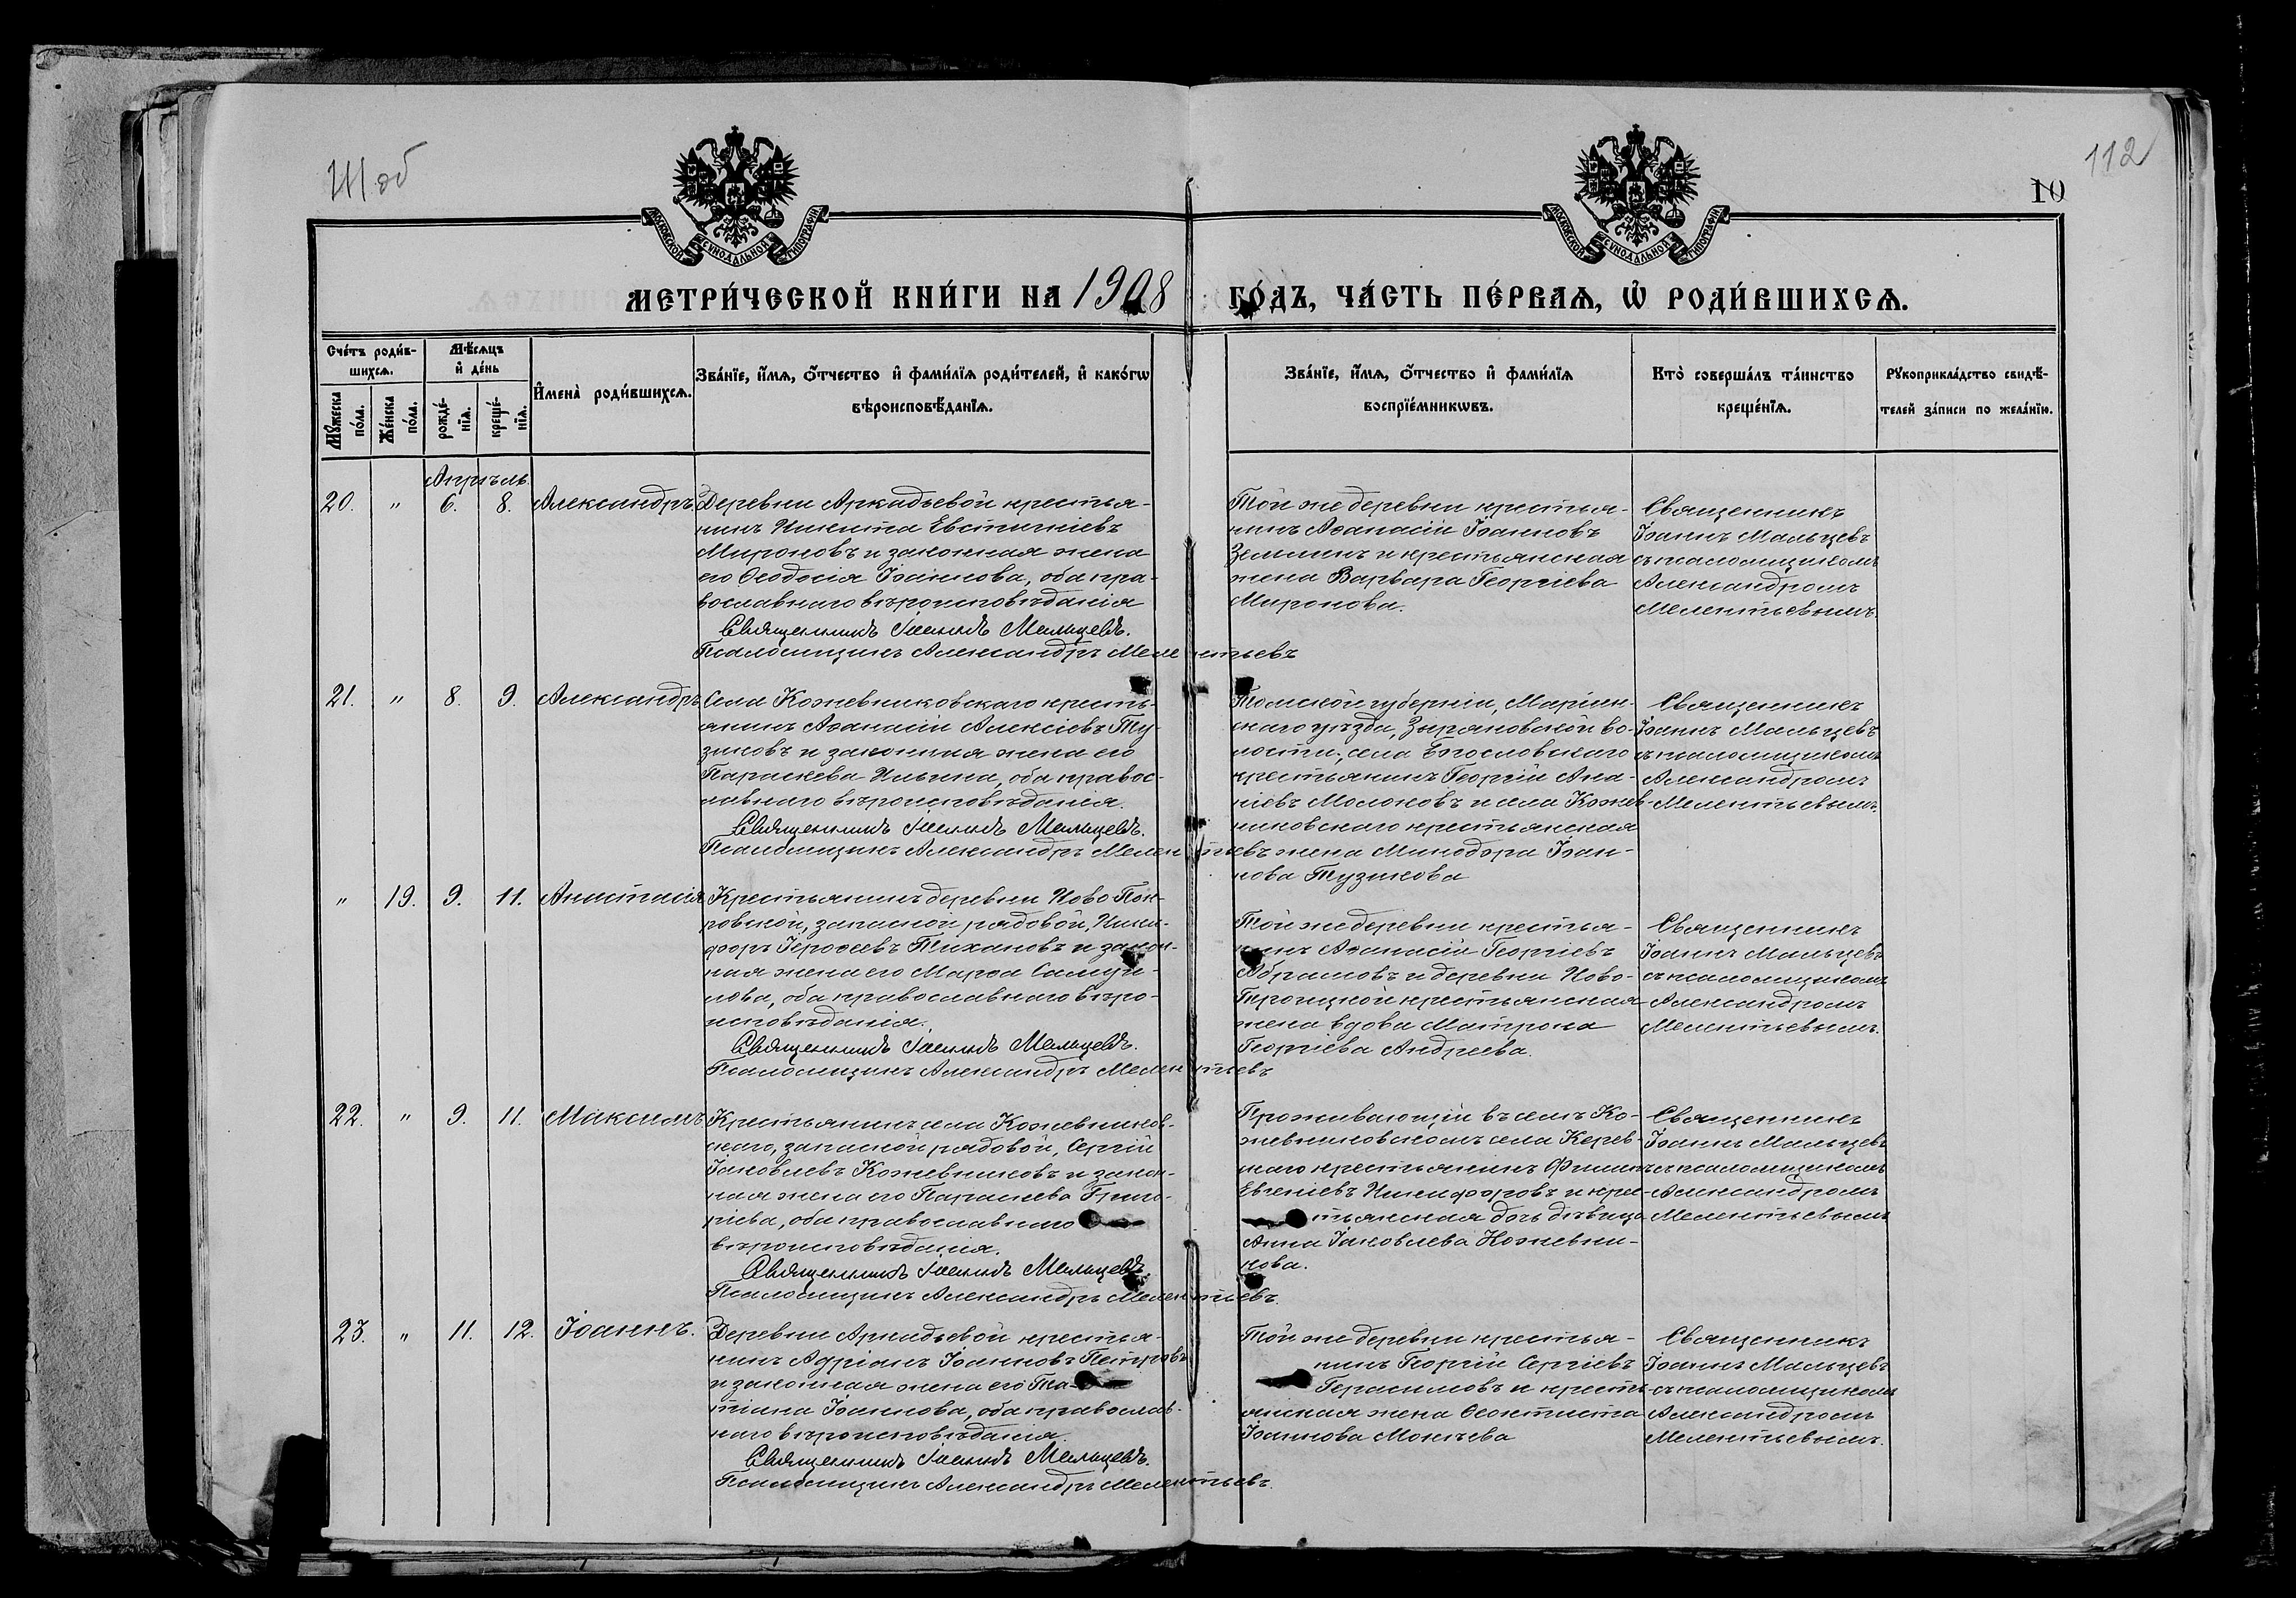 111 об
112
10
МОСКОВСКОЙ СѴНОДАЛЬНОЙ ТИПОГРАФІИ
МОСКОВСКОЙ СѴНОДАЛЬНОЙ ТИПОГРАФІИ
МЕТРИ́ЧЕСКОЙ КНИ́ГИ НА 1908 ГО́ДЪ, ЧА́СТЬ ПЕ́РВАѦ, Ѡ РОДИ́ВШИХСѦ.
Сче́тъ роди́в-
шихсѧ.
Мꙋжеска по́ла.
Же́нска по́ла.
Мѣ́сѧцъ
и҆ де́нь
рожде́-
нїѧ.
креще́-
нїѧ.
И҆мена̀ роди́вшихсѧ.
Зва́нїе, и҆́мѧ, ѻ҆́тчество и҆ фами́лїѧ роди́телей, и҆ како́гѡ
вѣроисповѣ́данїѧ.
Зва́нїе, и҆́мѧ, ѻ҆́тчество и҆ фами́лїѧ
воспрїе́мникѡвъ.
Кто̀ соверша́лъ та́инство
креще́нїѧ.
Рꙋкоприкла́дство свидѣ́-
телей за́писи по жела́нїю.
Апрѣль.
20. " 6. 8. Александръ
Деревни Аркадьевой крестья-
нинъ Никита Евстигніевъ
Мироновъ и законная жена
его Ѳеодосія Іоаннова, оба пра-
вославнаго вѣроисповѣданія
Священникъ Іоаннъ Мальцевъ.
Псаломщикъ Александръ Мелентьевъ
Той же деревни крестья-
нинъ Аѳанасій Іоанновъ
Земинъ и крестьянская
жена Варвара Георгіева
Миронова.
Священникъ
Іоаннъ Мальцевъ
съ псаломщикомъ
Александромъ
Мелентьевымъ.
21. " 8. 9. Александръ
Села Кожевниковскаго кресть-
янинъ Аѳанасій Алексіевъ Ту-
зиковъ и законная жена его
Параскева Ильина, оба правос-
лавнаго вѣроисповѣданія.
Священникъ Іоаннъ Мальцевъ.
Псаломщикъ Александръ Мелентьевъ
Томской губерніи, Маріин-
скаго уѣзда, Зыряновской во-
лости, села Богословскаго
крестьянинъ Георгій Ана-
ніевъ Молоковъ и села Кожев-
никовскаго крестьянская
жена Минодора Іоан-
нова Тузикова
Священникъ
Іоаннъ Мальцевъ
съ псаломщикомъ
Александромъ
Мелентьевымъ.
" 19. 9. 11. Анастасія
Крестьянинъ деревни Ново Пок-
ровской, запасной рядовой, Ники-
форъ Іероѳеевъ Тихановъ и закон-
ная жена его Марѳа Самуи-
лова, оба православнаго вѣро-
исповѣданія.
Священникъ Іоаннъ Мальцевъ.
Псаломщикъ Александръ Мелентьевъ
Той же деревни крестья-
нинъ Аѳанасій Георгіевъ
Абрамовъ и деревни Ново-
Троицкой крестьянская
жена вдова Матрона
Георгіева Андреева.
Священникъ
Іоаннъ Мальцевъ
съ псаломщикомъ
Александромъ
Мелентьевымъ.
22. " 9. 11. Максимъ
Крестьянинъ села Кожевников-
скаго, запасной рядовой, Сергій
Іаковлевъ Кожевниковъ и закон-
ная жена его Параскева Григо-
ріева, оба православнаго
вѣроисповѣданія.
Священникъ Іоаннъ Мальцевъ.
Псаломщикъ Александръ Мелентьевъ.
Проживающій въ селѣ Ко-
жевниковскомъ села Керев-
скаго крестьянинъ
Евгеніевъ Никифоровъ и крес-
тьянская дочь дѣвица
Анна Іаковлева Кожевни-
кова.
Священникъ
Іоаннъ Мальцевъ
съ псаломщикомъ
Александромъ
Мелентьевымъ
23. " 11. 12. Іоаннъ.
Деревни Аркадьевой крестья-
нинъ Адріанъ Іоанновъ Петровъ
и законная жена его Та-
тіана Іоаннова, оба православ-
наго вѣроисповѣданія.
Священникъ Іоаннъ Мальцевъ.
Псаломщикъ Александръ Мелентьевъ.
Той же деревни крестья-
нинъ Георгій Сергіевъ
Герасимовъ и кресть-
янская жена Ѳеоктиста
Іоаннова Мокѣева
Священникъ
Іоаннъ Мальцевъ
съ псаломщикомъ
Александромъ
Мелентьевымъ.